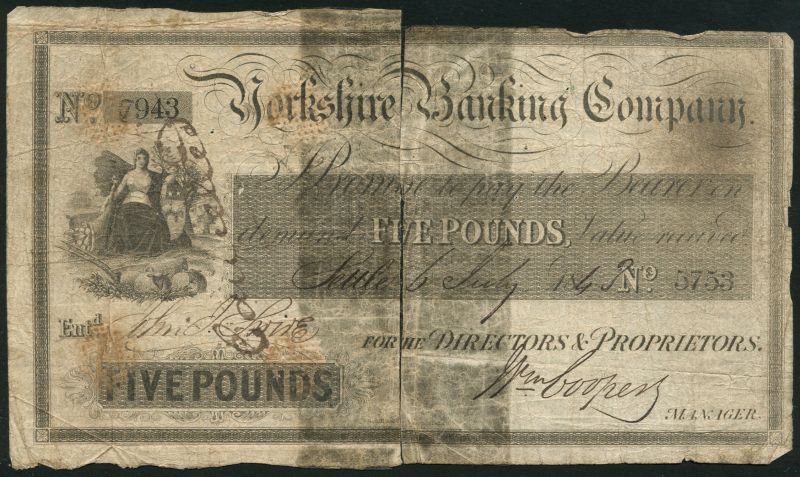 Yorkshire Banking Company.
No 7943
I Promise to pay the Bearer on
demand FIVE POUNDS, Value received
Settle 6 July 1843 No 5753
Entd
FOR THE DIRECTORS & PROPRIETORS.
Wm Cooper
FIVE POUNDS
MANAGER.